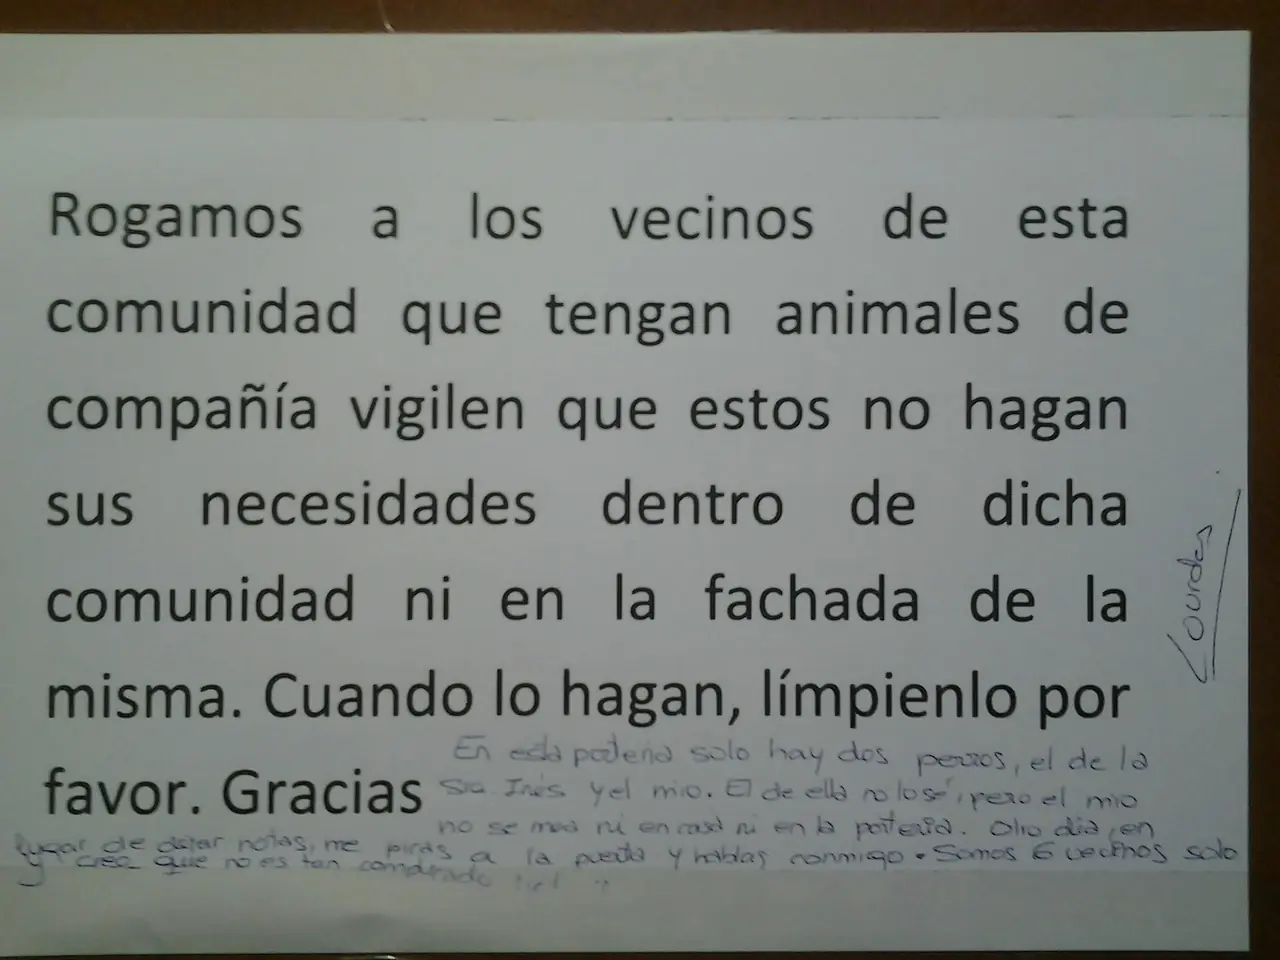 Rogamos a los vecinos de esta
comunidad que tengan animales de
compañía vigilen que estos no hagan
sus necesidades dentro de dicha
comunidad ni en la fachada de la
misma. Cuando lo hagan, límpienlo por
favor. Gracias
En esta porteria solo hay dos perros, el de la
Sra. Inés y el mio. El de ella no lo sé, pero el mio
no se mea ni en casa ni en la porteria. Otro dia, en
lugar de dejar notas, me picas a la puerta y hablas conmigo. Somos 6 vecinos solo
y creo que no es tan complicado
Lourdes